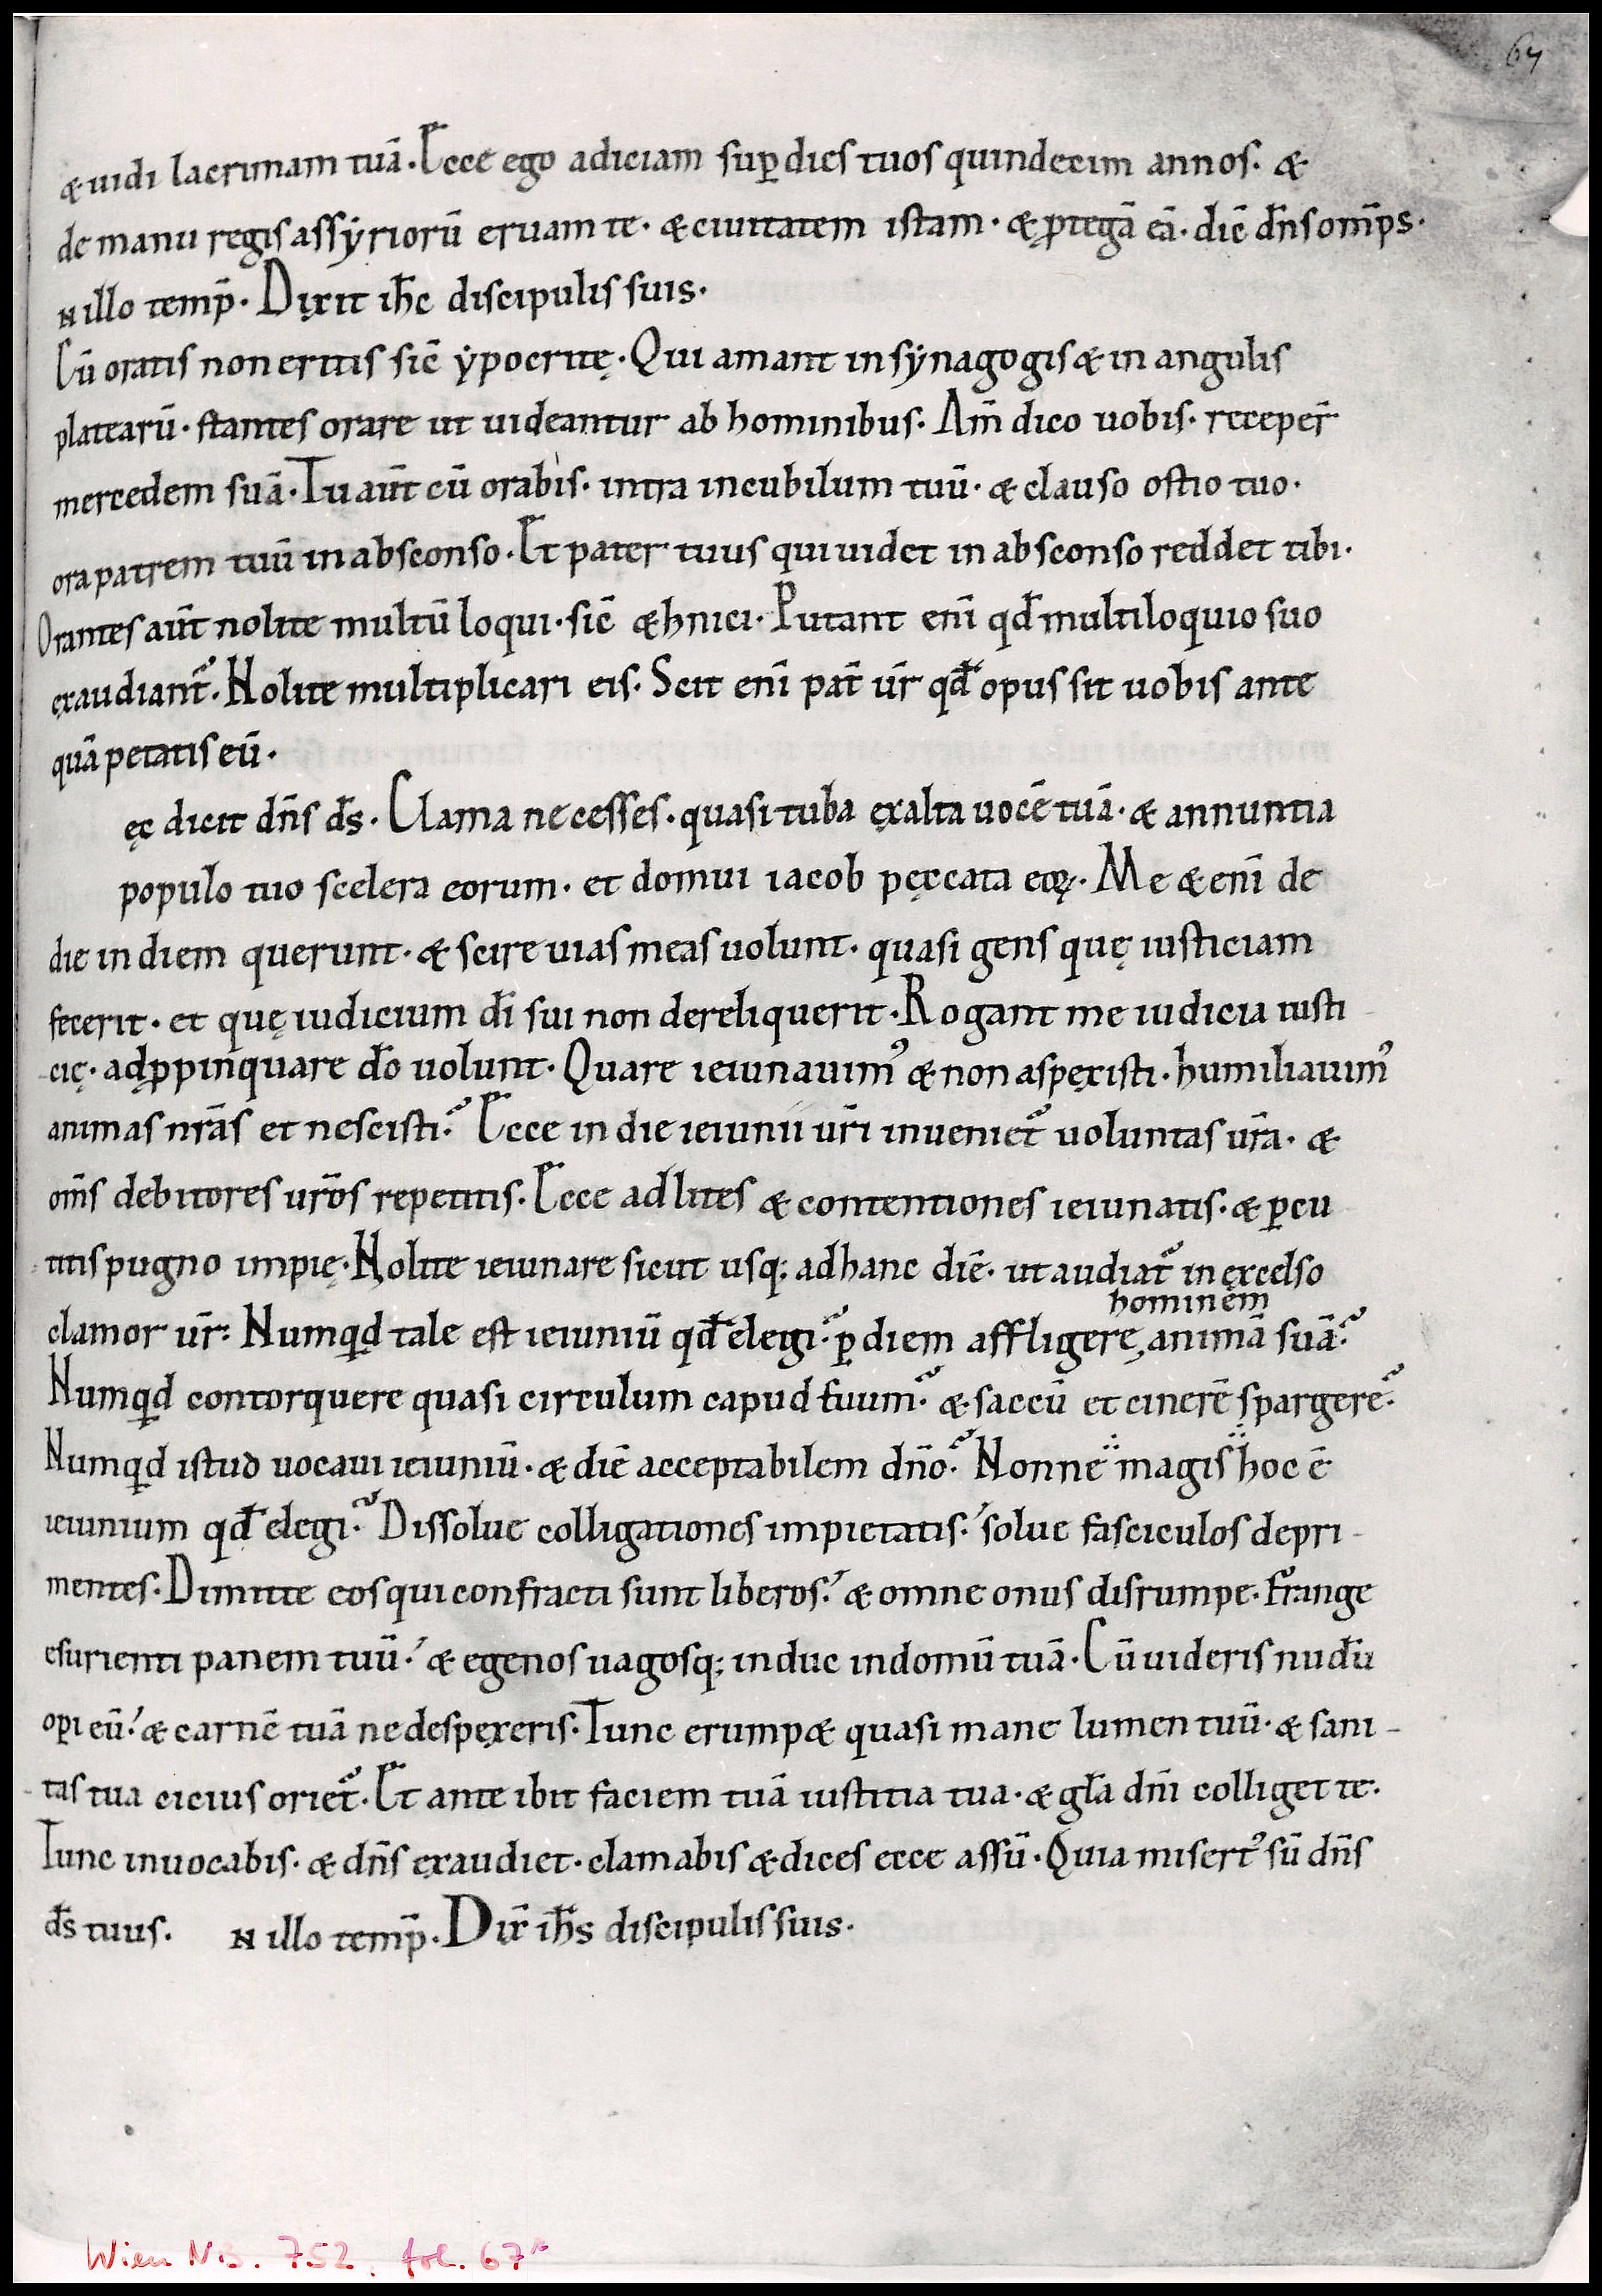 67
& uidi lacrimam tuā. Ecce ego adiciam sup̱ dies tuos quindecim annos. &
de manu regis assẏriorū eruam te. & ciuitatem istam. & ꝓtegā eā. dic̄ dn̄s om̄ps.
N illo temp̄. Dixit ih̄c discipulis suis.
Cū oratis non eritis sic̄ ẏpocritę. Qui amant in sẏnagogis & in angulis
platearū. stantes orare ut uideantur ab hominibus. Am̄ dico uobis. receper̄
mercedem suā. Tu aūt cū orabis. intra in cubilum tuū. & clauso ostio tuo.
ora patrem tuū in absconso. Et pater tuus qui uidet in absconso reddet tibi.
Orantes aūt nolite multū loqui. sic̄ &hnici. Putant eni̅ qd̄ multiloquio suo
exaudiant᷑. Nolite multiplicari eis. Scit eni̅ pat̄ ur̄ qd̄ opus sit uobis ante
quā petatis eū.
ęc dicit dn̄s ds̄. Clama ne cesses. quasi tuba exalta uocē tuā. & annuntia
populo tuo scelera eorum. et domui iacob peccata eoꝝ. Me & eni̅ de
die in diem querunt. & scire uias meas uolunt. quasi gens quę iusticiam
fecerit. et quę iudicium di̅ sui non dereliquerit. Rogant me iudicia iusti
cię. adꝓpinquare do̅ uolunt. Quare ieiunauimꝰ & non aspexisti. humiliauimꝰ
animas nr̄as et nescisti? Ecce in die ieiunii ur̄i inueniet᷑ uoluntas ur̄a. &
om̄s debitores ur̄os repetitis. Ecce ad lites & contentiones ieiunatis. & ꝑcu
titis pugno impię. Nolite ieiunare sicut usq; ad hanc diē. ut audiat᷑ in excelso
hominem
clamor ur̄. Numqid tale est ieiuniū qd̄ elegi? ꝑ diem affligere, animā suā?
Numqid contorquere quasi circulum capud tuum? & saccū et cinerē spargere?
Numqid istud uocaui ieiuniū. & diē acceptabilem dn̄o? Nonne magis hoc ē
ieiunium qd̄ elegi? Dissolue colligationes impietatis. solue fasciculos depri-
mentes. Dimitte eos qui confracti sunt liberos. & omne onus disrumpe. Frange
esurienti panem tuū. & egenos uagosq; induc in domū tuā. Cū uideris nudū
opi eū. & carnē tuā ne despexeris. Tunc erump& quasi mane lumen tuū. & sani-
tas tua cicius oriet᷑. Et ante ibit faciem tuā iustitia tua. & gl̄a dn̄i colliget te.
Tunc inuocabis. & dn̄s exaudiet. clamabis & dices ecce assū. Quia misertꝰ sū dn̄s
ds̄ tuus. N illo temp̄. Dix̄ ih̄s discipulis suis.
Wien NB. 752, fol. 67r